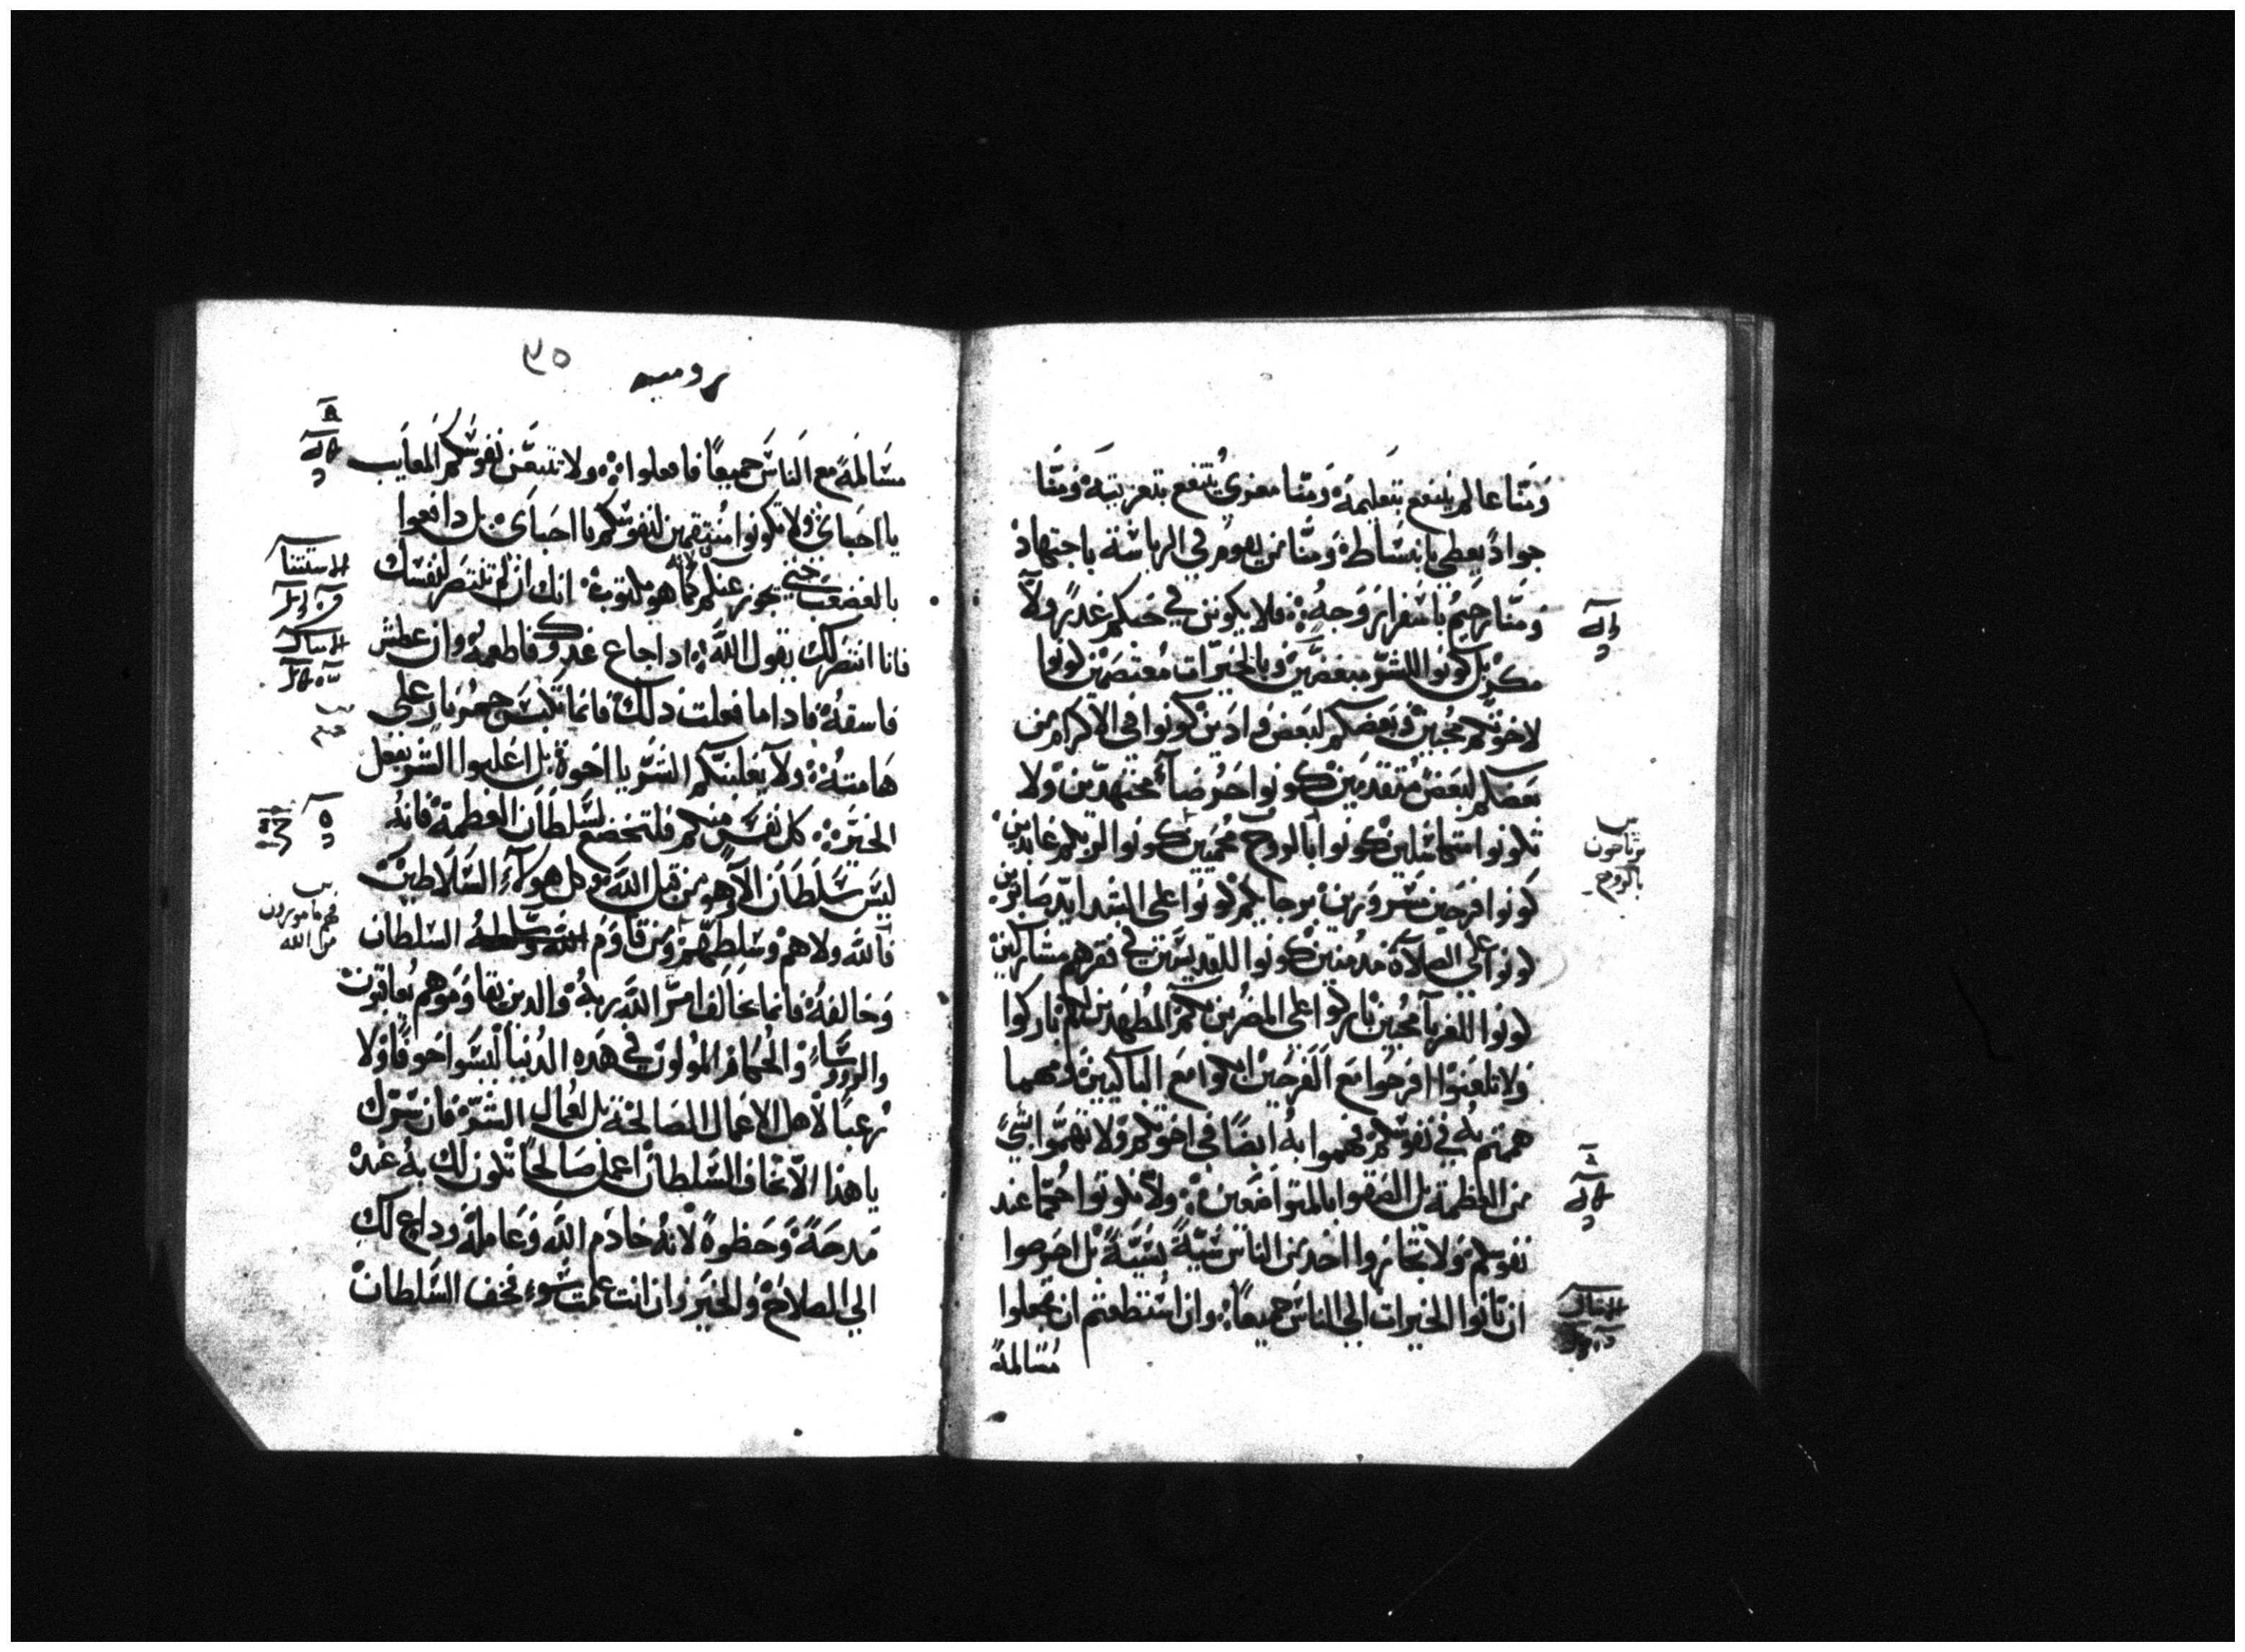 ومنا عالم ينتفع بتعليمه ومنا معزي ينتفع بتعزيته ومنا
جواد يعطي بانبساطة ومنا من يقوم في الرياسة باجتهاد
ومنا رحيم باسفرار وجهه فلا يكونن في حبكم غدر ولا
مكر بل كونوا للشر مبغضين وبالخيرات معتصمين كونوا
لاخوتكم محبين وبعضكم لبعض وادين كونوا في الاكرام من
بعضكم لبعض متقدمين كونوا حرضاء مجتهدين ولا
تكونوا متكاسلين كونوا بالروح محميين كونوا لربكم عابدين
كونوا فرحين مسرورين برجايكم كونوا على الشدايد صابرين
كونوا على الصلاة مدمنين كونوا للقديسين في فقرهم مشاركين
كونوا للغربا محبين باركوا على المضرين بكم المطهدين لكم باركوا
ولا تلعنوا افرحوا مع الفرحين ابكوا مع الباكيين ومهما
هممتم به في نفوسكم فهموا به ايضا في اخوتكم ولا تهموا بشي
من العظمة بل الصقوا بالمتواضعين ولا تكونوا حكما عند
نفوسكم ولا تجازوا احد من الناس سية بسية بل احرصوا
ان تاتوا الخيرات الى الناس جميعا وان استطعتم ان تجعلوا
مسالمة
يرتاحون
بالروح
رومية
مسالمة مع الناس جميعا فافعلوا ولا تتبعن نفوسكم المعايب
يا احباي ولا تكونوا منتقمين لنفوسكم يا احباي بل دافعوا
بالغضب حتى يجوز عنكم لانه كما هو مكتوب انك ان لم تنتصر لنفسك
فانا انتصر لك يقول الله اذا جاع عدوك فاطعمه وان عطش
فاسقه فاذا ما فعلت ذلك فانما تكبس جمر نار على
هامته ولا يغلبنكم الشر يا اخوة بل اغلبوا الشر بفعل
الخير كل نفس منكم فلتخضع لسلطان العظمة فانه
ليس سلطان الا وهو من قبل الله وكل هولاء السلاطين
فالله ولاهم وسلطهم ومن قاوم الله وسلطه السلطان
وخالفه فانما يخالف امر الله ربه والذين يقاوموهم يعاقبون
والروساء والحكام المولون في هذه الدنيا ليسوا خوفا ولا
رعبا لاهل الاعمال الصالحة بل لعمال الشر فان سرك
يا هذا الا تخاف السلطان اعمل صالحا تكون لك به عنده
مدحة وحظوة لانه خادم الله وعامله وداع لك
الى الصلاح والخير وان انت عملت سوء فخف السلطان
الاستتنا
فهم مامورون
من الله